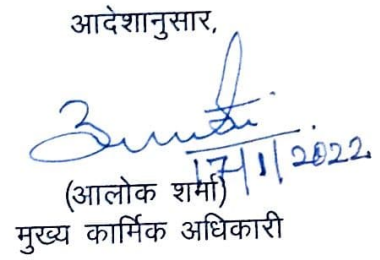 आदेशानुसार,
17/1/2022
(आलोक शर्मा)
मुख्य कार्मिक अधिकारी